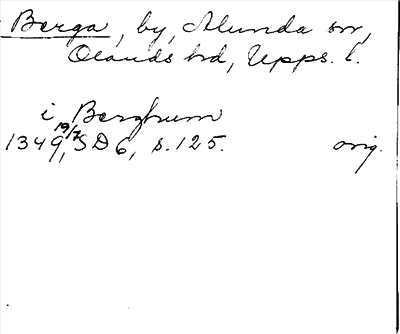 Berga, by, Alunda sn,
Olands hd, Upps. l.
i Berghum
1349 19/7, SD 6, s. 125. orig.